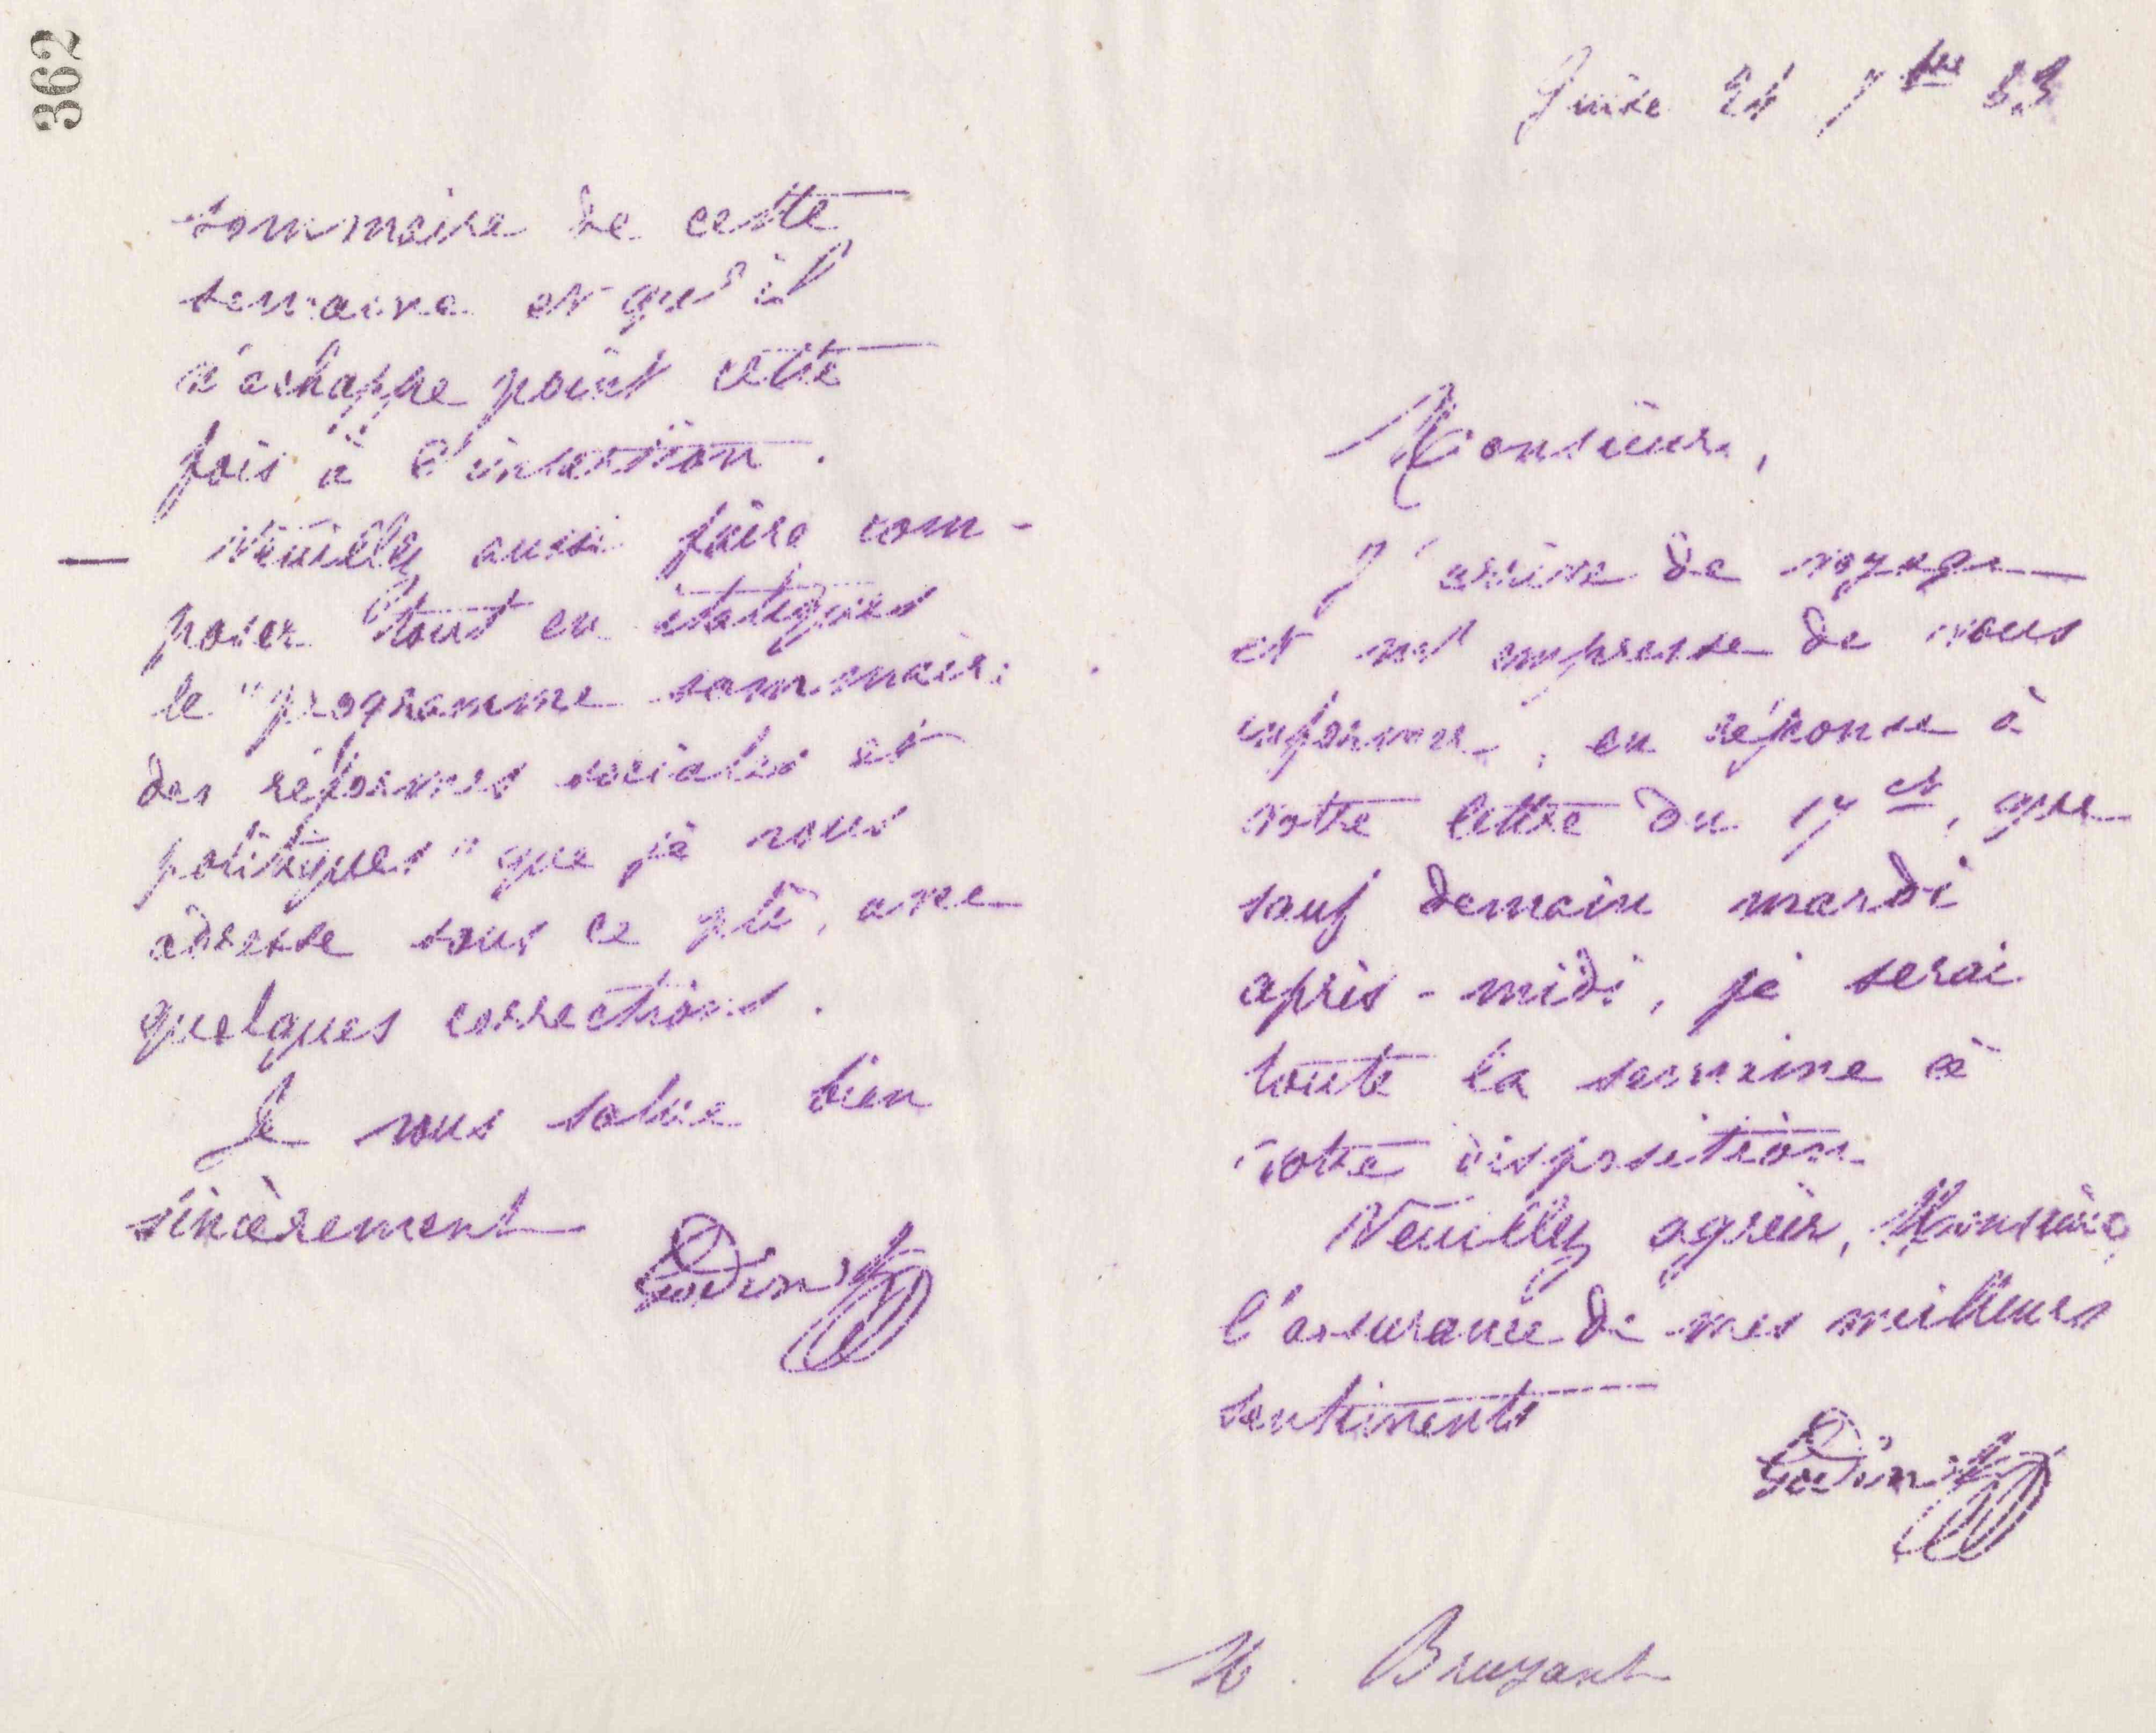 362
sommaire de cette
semaine et qu'il
n'echappe point cette
fois à l'insertion.
— Veuillez aussi faire com-
poser tout en italiques
le "programme sommaire
des réformes sociales et
politiques" que je vous
adresse sous ce pli, avec
quelques corrections.
Je vous salue bien
sincèrement
Godin
Guise 24 7bre 83
Monsieur,
J'arrive de voyage
et m'empresse de vous
informer, en réponse à
votre lettre du 17 ct, que
sauf demain mardi
après-midi, je serai
toute la semaine à
votre disposition
Veuillez agréer, Monsieur,
l'assurance de mes meilleurs
sentiments
Godin
M. Bruyant